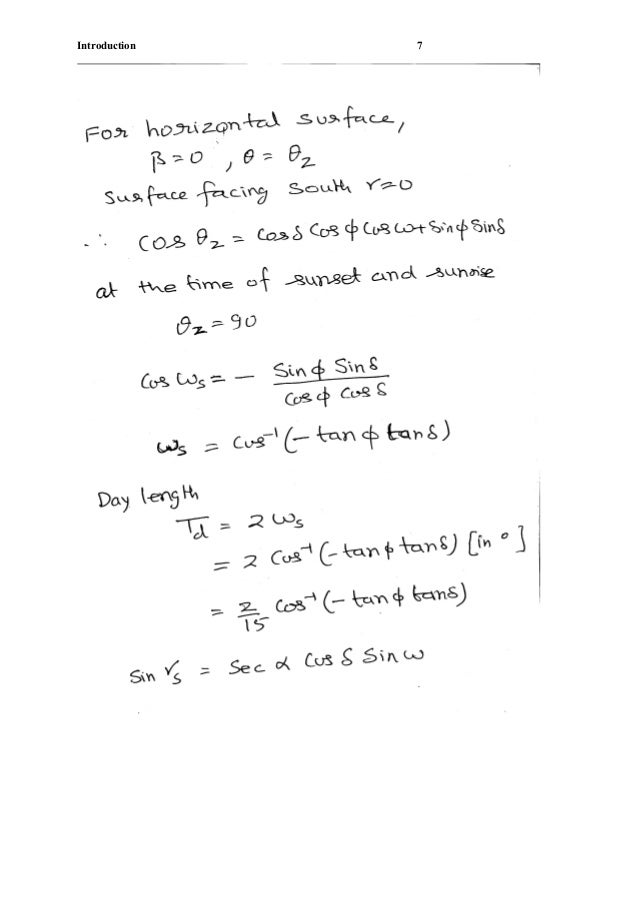 Introduction 7
For horizontal surface,
β = 0 , θ = θz
Surface facing South r=0
∴ cos θz = Cosδ Cos ϕ Cos ω + Sinϕ Sinδ
at the time of sunset and sunrise
θz = 90
Cos ωs = - Sin ϕ Sin δ / Cos ϕ Cos δ
ωs = Cos⁻¹ (- tan ϕ tan δ)
Day length
Td = 2 ωs
= 2 Cos⁻¹ (- tan ϕ tan δ) [in °]
= 2/15 Cos⁻¹ (- tan ϕ tan δ)
Sin γs = Sec α Cos δ Sin ω